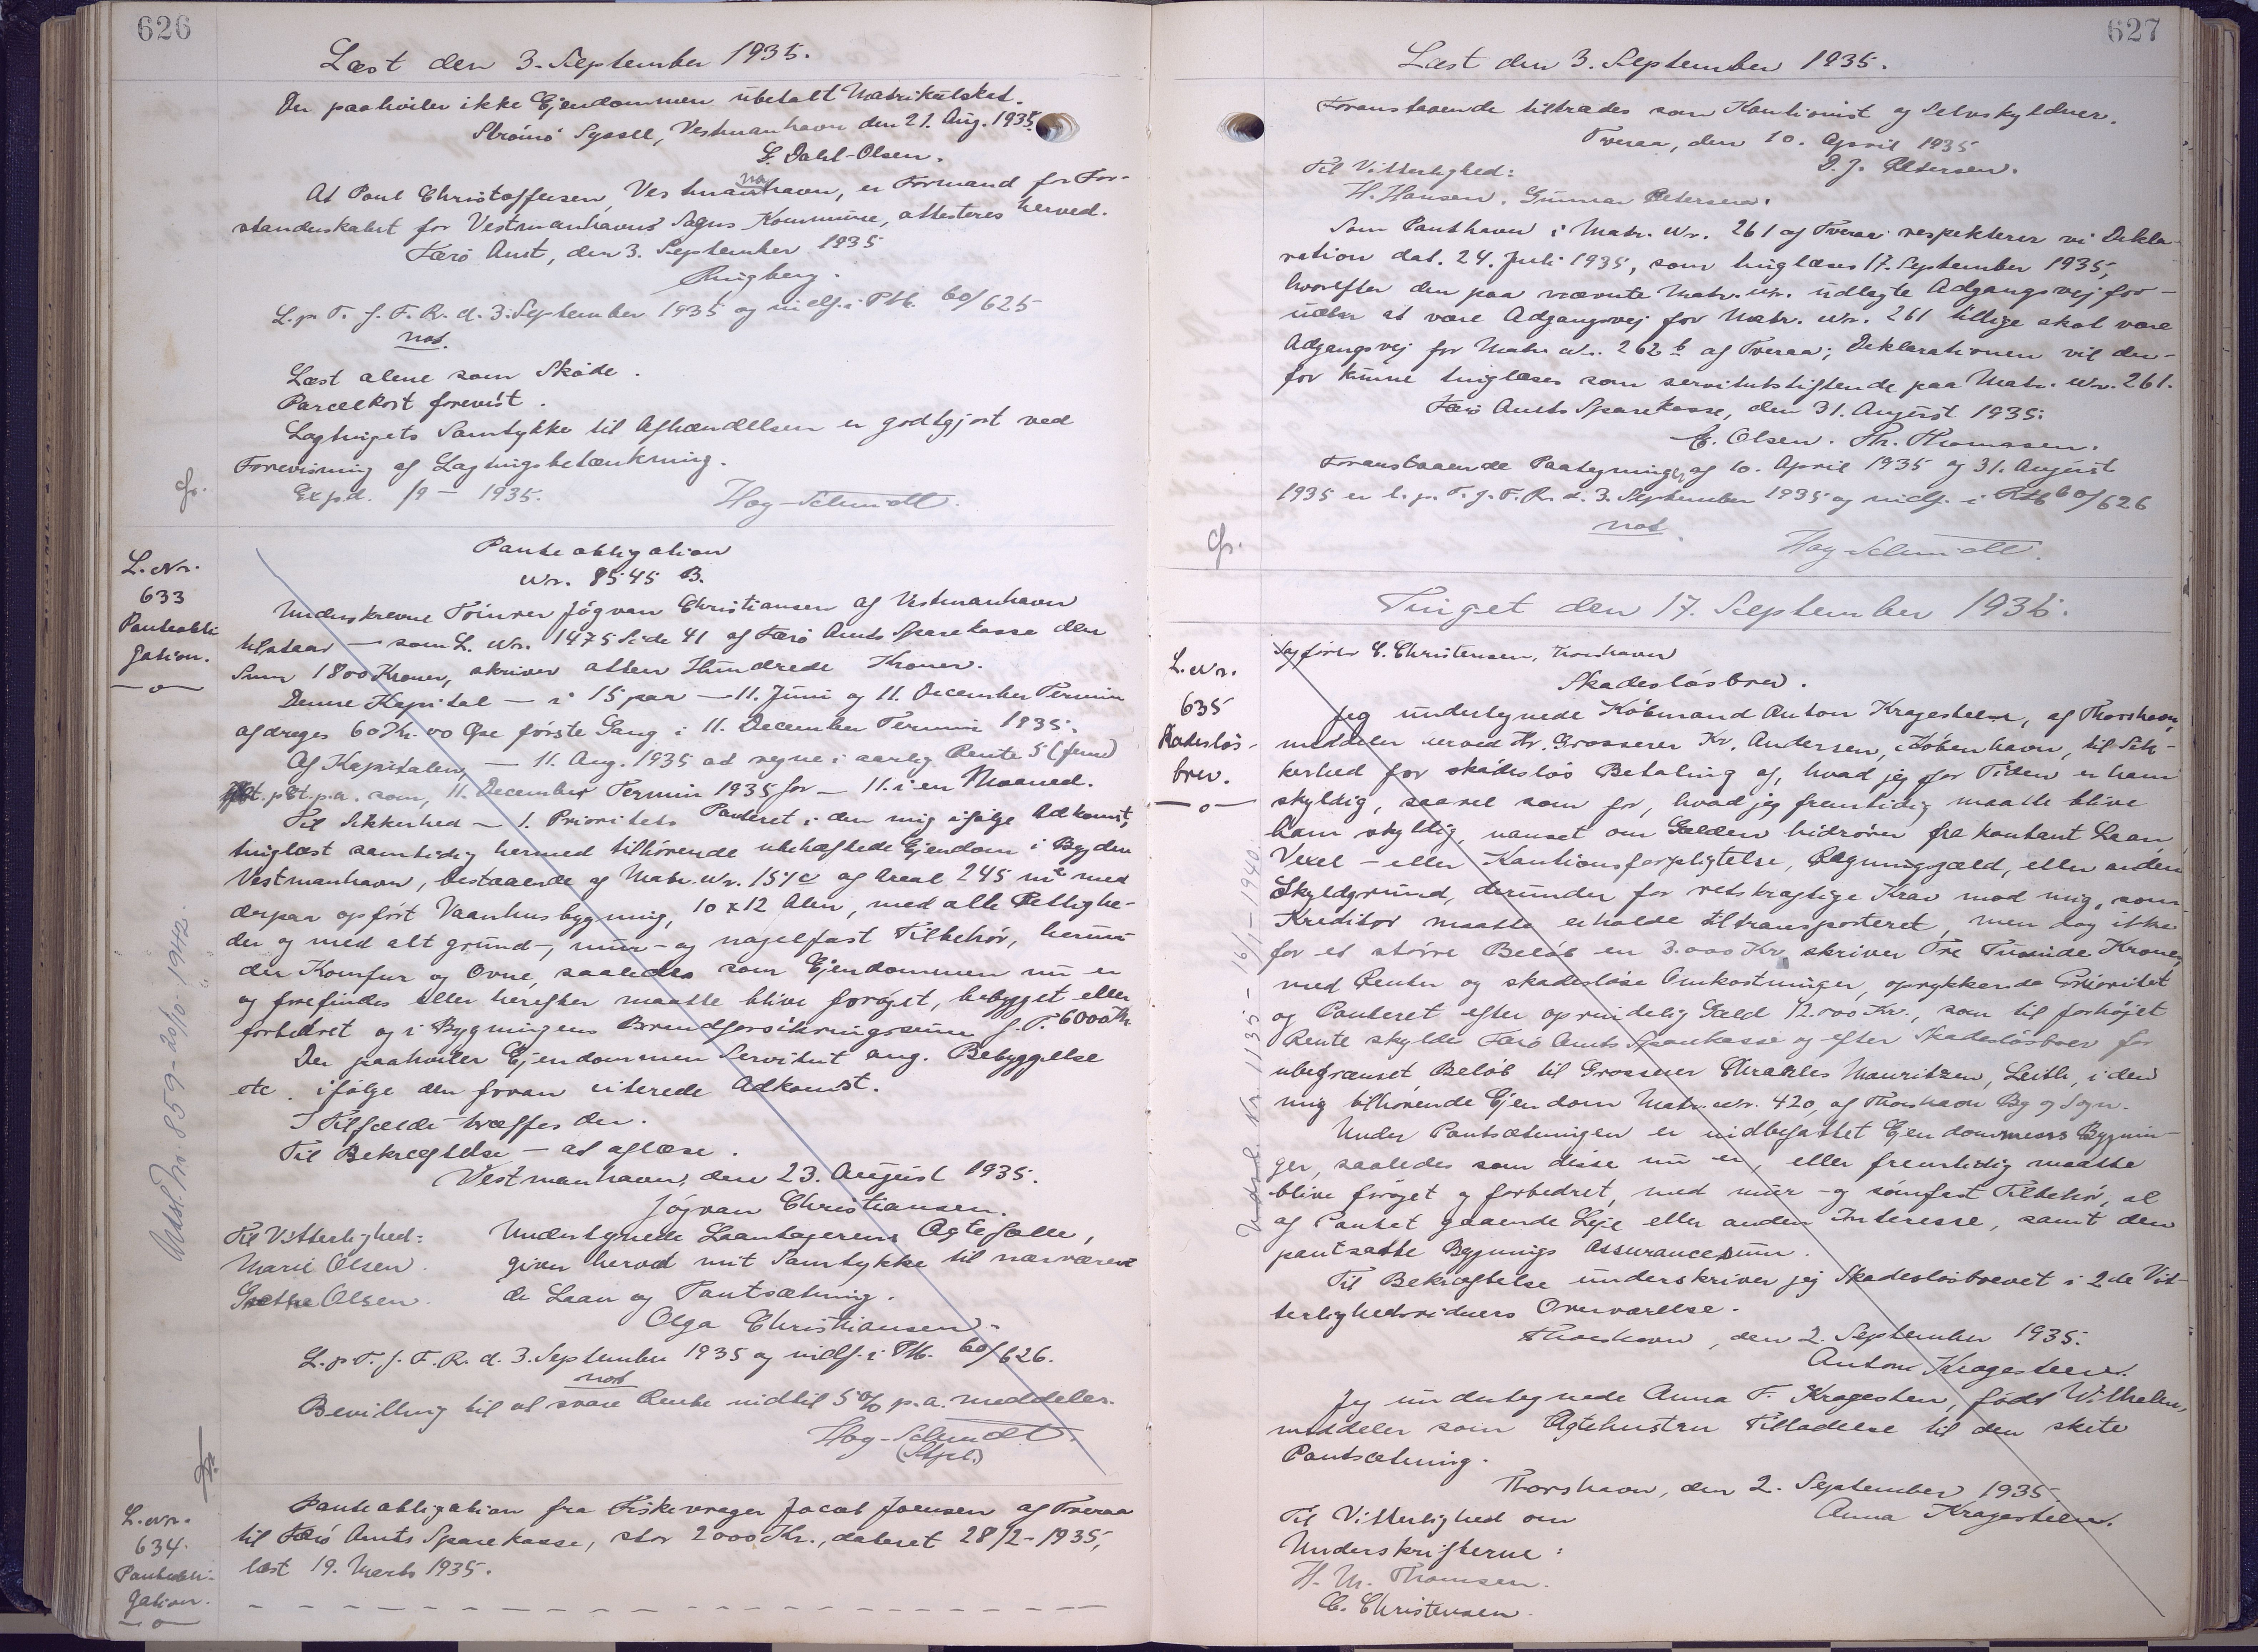 626
Læst den 3. September 1935.
Der paahviler ikke Ejendommen ubetalt Matrikulskat.
Strömö Syssel, Vestmanhavn den 21. Aug. 1935.
L. Dahl-Olsen.
At Poul Christoffersen, Vestmanhavn, er Formand for For-
standerskabet for Vestmanhavns Sogns Kommune, attesteres herved.
Færö Amt, den 3. September 1935
Ringberg.
L. p. T. f. F. R. d. 3. September 1935 og indf. i Ptb. 60/625
not.
Læst alene som Skøde.
Parcelkort forevist.
Lagtingets Samtykke til Afhændelsen er godtgjort ved
Forevisning af Lagtingsbetænkning.
Exp.d. /9 - 1935.
Hay-Schmidt.
L. Nr.
633
Panteobli
gation.
Panteobligation
Nr. 8545 B.
Underskrevne Tömrer Jógvan Christiansen af Vestmanhavn
tilstaar — som L. Nr. 1475 Side 41 af Færö Amts Sparekasse den
Sum 1800 Kroner, skriver atten Hundrede Kroner.
Denne Kapital — i 15 paa — 11. Juni og 11. December Termin
afdrages 60 Kr. 00 Øre første Gang i 11. December Termin 1935.
Af Kapitalen, — 11. Aug. 1935 at regne i aarlig Rente 5 (fem)
pCt. p.a. som, 11. December Termin 1935 for — 11. i en Maaned.
Til Sikkerhed — 1. Prioritets Panteret i den mig ifølge Adkomst,
tinglæst samtidig hermed tilhörende ubehæftede Ejendom i Bygden
Vestmanhavn, bestaaende af Matr. Nr. 151c af Areal 245 m² med
derpaa opført Vaanhusbygning, 10 x 12 Alen, med alle Rettighe-
der og med alt grund-, mur- og nagelfast Tilbehör, herun-
der Komfur og Ovne, saaledes som Ejendommen nu er
og forefindes eller herefter maatte blive forøget, bebygget eller
forbedret og i Bygningens Brandforsikringssum f. T. 6000 Kr.
Der paahviler Ejendommen Servitut ang. Bebyggelse
etc. ifølge den foran citerede Adkomst.
I Tilfælde — træffes der.
Til Bekræftelse — at aflæse.
Vestmanhavn, den 23. August 1935.
Jógvan Christiansen.
Til Vitterlighed:
Marie Olsen.
Grethe Olsen.
Undertegnede Laantagerens Ægtefælle,
giver herved mit Samtykke til nærværen-
de Laan og Pantsætning.
Olga Christiansen.
L. p. T. f. F. R. d. 3. September 1935 og indf. i Ptb. 60/626.
not
Bevilling til at svare Rente indtil 5 % p.a. meddeles.
Hay-Schmidt.
Udsl. Nr. 859 - 20/10 1942.
L. Nr.
634.
Panteobli-
gation.
Panteobligation fra Fiskevrager Jacob Joensen af Tveraa
til Færö Amts Sparekasse, stor 2000 Kr., dateret 28/2-1935,
læst 19. Marts 1935.
627
Læst den 3. September 1935.
Foranstaaende tiltrædes som Kautionist og Selvskyldner.
Tveraa, den 10. April 1935
D. J. Petersen.
Til Vitterlighed:
H. Hansen. Gunnar Petersen.
Som Panthaver i Matr. Nr. 261 af Tveraa respekterer vi Dekla-
ration dat. 24. Juli 1935, som tinglæses 17. September 1935,
hvorefter den paa nævnte Matr. Nr. udlagte Adgangsvej for-
uden at være Adgangsvej for Matr. Nr. 261 tillige skal være
Adgangsvej for Matr. Nr. 262 b af Tveraa; Deklarationen vil der-
for kunne tinglæses som servitutstiftende paa Matr. Nr. 261.
Færö Amts Sparekasse, den 31. August 1935.
C. Olsen. Th. Thomassen.
Foranstaaende Paategninger af 10. April 1935 og 31. August
1935 er l. p. T. f. F. R. d. 3. September 1935 og indf. i Ptb 60/626
not.
Hay-Schmidt.
Tinget den 17. September 1935.
L. Nr.
635
Skadesløs-
brev.
Sagfører C. Christensen, Thorshavn
Skadesløsbrev.
Jeg undertegnede Købmand Anton Kragesteen, af Thorshavn,
meddeler herved Hr. Grosserer Kr. Andersen, København, til Sik-
kerhed for skadesløs Betaling af, hvad jeg for Tiden er ham
skyldig, saavel som for, hvad jeg fremtidig maatte blive
ham skyldig, uanset om Gælden hidrører fra kontant Laan,
Vexel- eller Kautionsforpligtelse, Regningsgæld, eller anden
Skyldgrund, derunder for retskraftige Krav mod mig, som
Kreditor maatte erholde tiltransporteret, men dog ikke
for et större Beløb en 3.000 Kr. skriver Tre Tusinde Kroner,
med Renter og skadesløse Omkostninger, oprykkende Prioritet
og Panteret efter oprindelig Gæld 12.000 Kr., som til forhøjet
Rente skyldes Færö Amts Sparekasse og efter Skadesløsbrev for
ubegrænset Beløb til Grosserer Charles Mauritzen, Leith, i den
mig tilhørende Ejendom Matr. Nr. 420, af Thorshavn By og Sogn.
Under Pantsætningen er indbefattet Ejendommens Bygnin-
ger, saaledes som disse nu er, eller fremtidig maatte
blive forøget og forbedret, med mur- og sömfast Tilbehör, al
af Pantet gaaende Leje eller anden Interesse, samt den
pantsatte Bygnings Assurancesum.
Til Bekræftelse underskriver jeg Skadesløsbrevet i 2de Vit-
terlighedsvidners Overværelse.
Thorshavn, den 2. September 1935.
Anton Kragesteen.
Jeg undertegnede Anna F. Kragesteen, født Wilhelm,
meddeler som Ægtehustru Tilladelse til den skete
Pantsætning.
Thorshavn, den 2. September 1935
Anna Kragesteen.
Til Vitterlighed om
Underskrifterne:
H. M. Thomsen.
C. Christensen.
Udsl. Nr. 1135 - 16/1 - 1940.